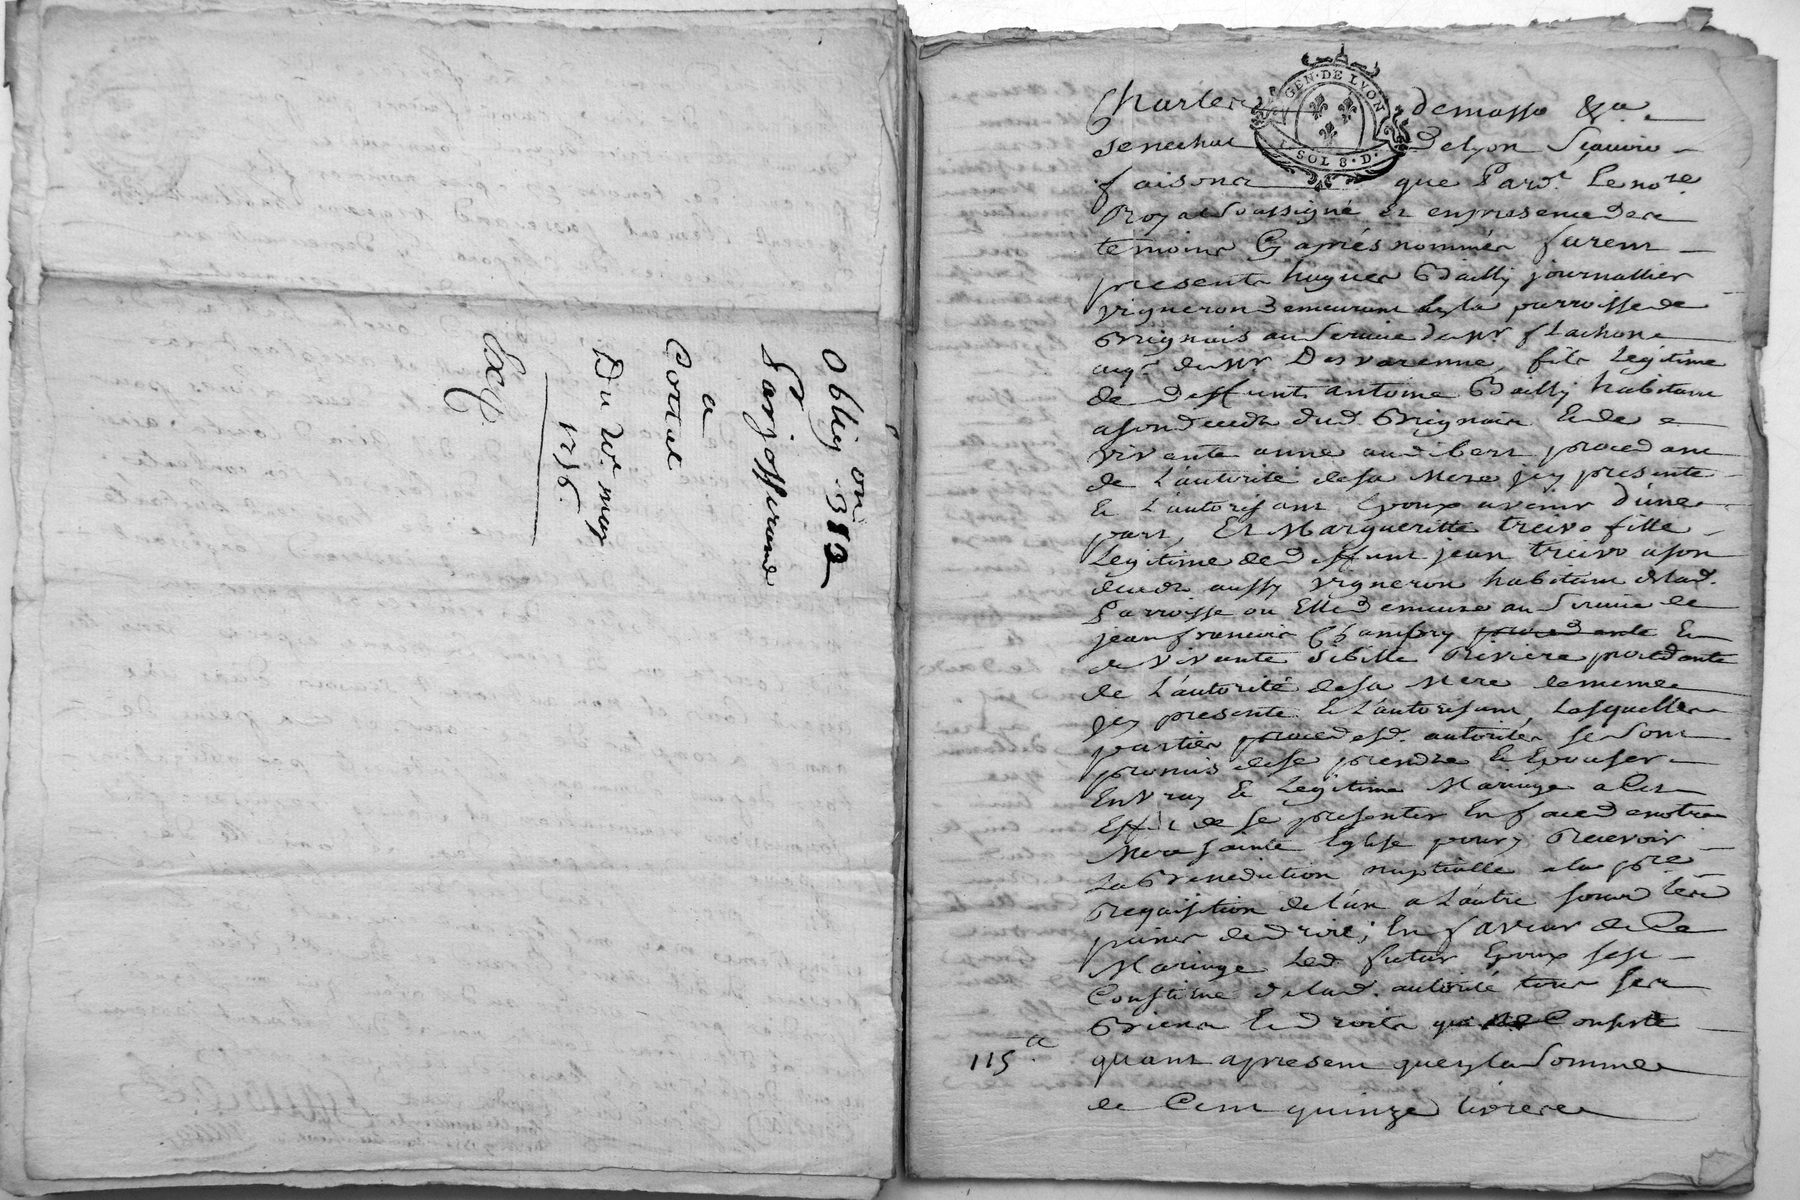 Oblig.on 382
Sarjosserand
a
Cottal
Du 20e. may
1756.
Exp.
GEN. DE LYON
1. SOL 8. D.
Charles demasso &a.
senechal Delyon Sçavoir
faisons que Pard.t Le no.re
Royal Soussigné Et enpresence des
temoins Cy aprés nommés furent
presents hugues Bailly journallier
vigneron Demeurant la parroisse de
Brignais au Service du Sr flachon
du Sr Desvarenne, fils Legitime
de Deffunt antoine Bailly habitant
ason decedz dud. Brignais Et de
vivante anne audibert procedant
de L'autorité desa Mere jcy presente
Et L'autorisant Epoux avenir d'une
part, Et Margueritte treivo fille
Legitime de deffunt jean treivo ason
decedz aussy vigneron habitant delad.
Parroisse ou Elle Demeure au Service de
jean francois Chambry procedante Et
de vivante Sibille Riviere procedante
de L'autorité desa Mere demême
jcy presente Et L'autorisant Lesquelles
parties procedesd. autorités se sont
promis dese prendre Et Epouser
En vray Et Legitime Mariage a Cet
Effet de se presenter En face denotre
Mere sainte Eglise pour y Recevoir
La Benediction nuptialle ala p.re
Requisition de l'un a L'autre sous les
peines de Droit; En faveur de Ce
Mariage Led. futur Epoux sest
Constitué delad. autorité tous ses
Biens Et Droits qui Consiste
115.tt quant apresent quen la Somme
de Cent quinze livres